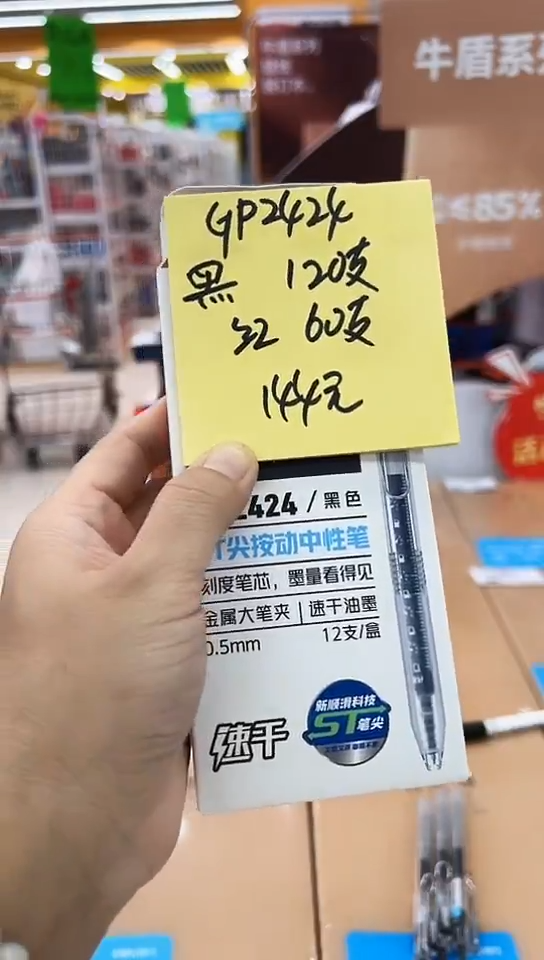 牛盾系列
≤85%
GP2424
黑 120支
红 60支
144元
2424 / 黑色
ST尖按动中性笔
刻度笔芯，墨量看得见
金属大笔夹 | 速干油墨
0.5mm 12支/盒
速干
新顺滑科技
ST笔尖